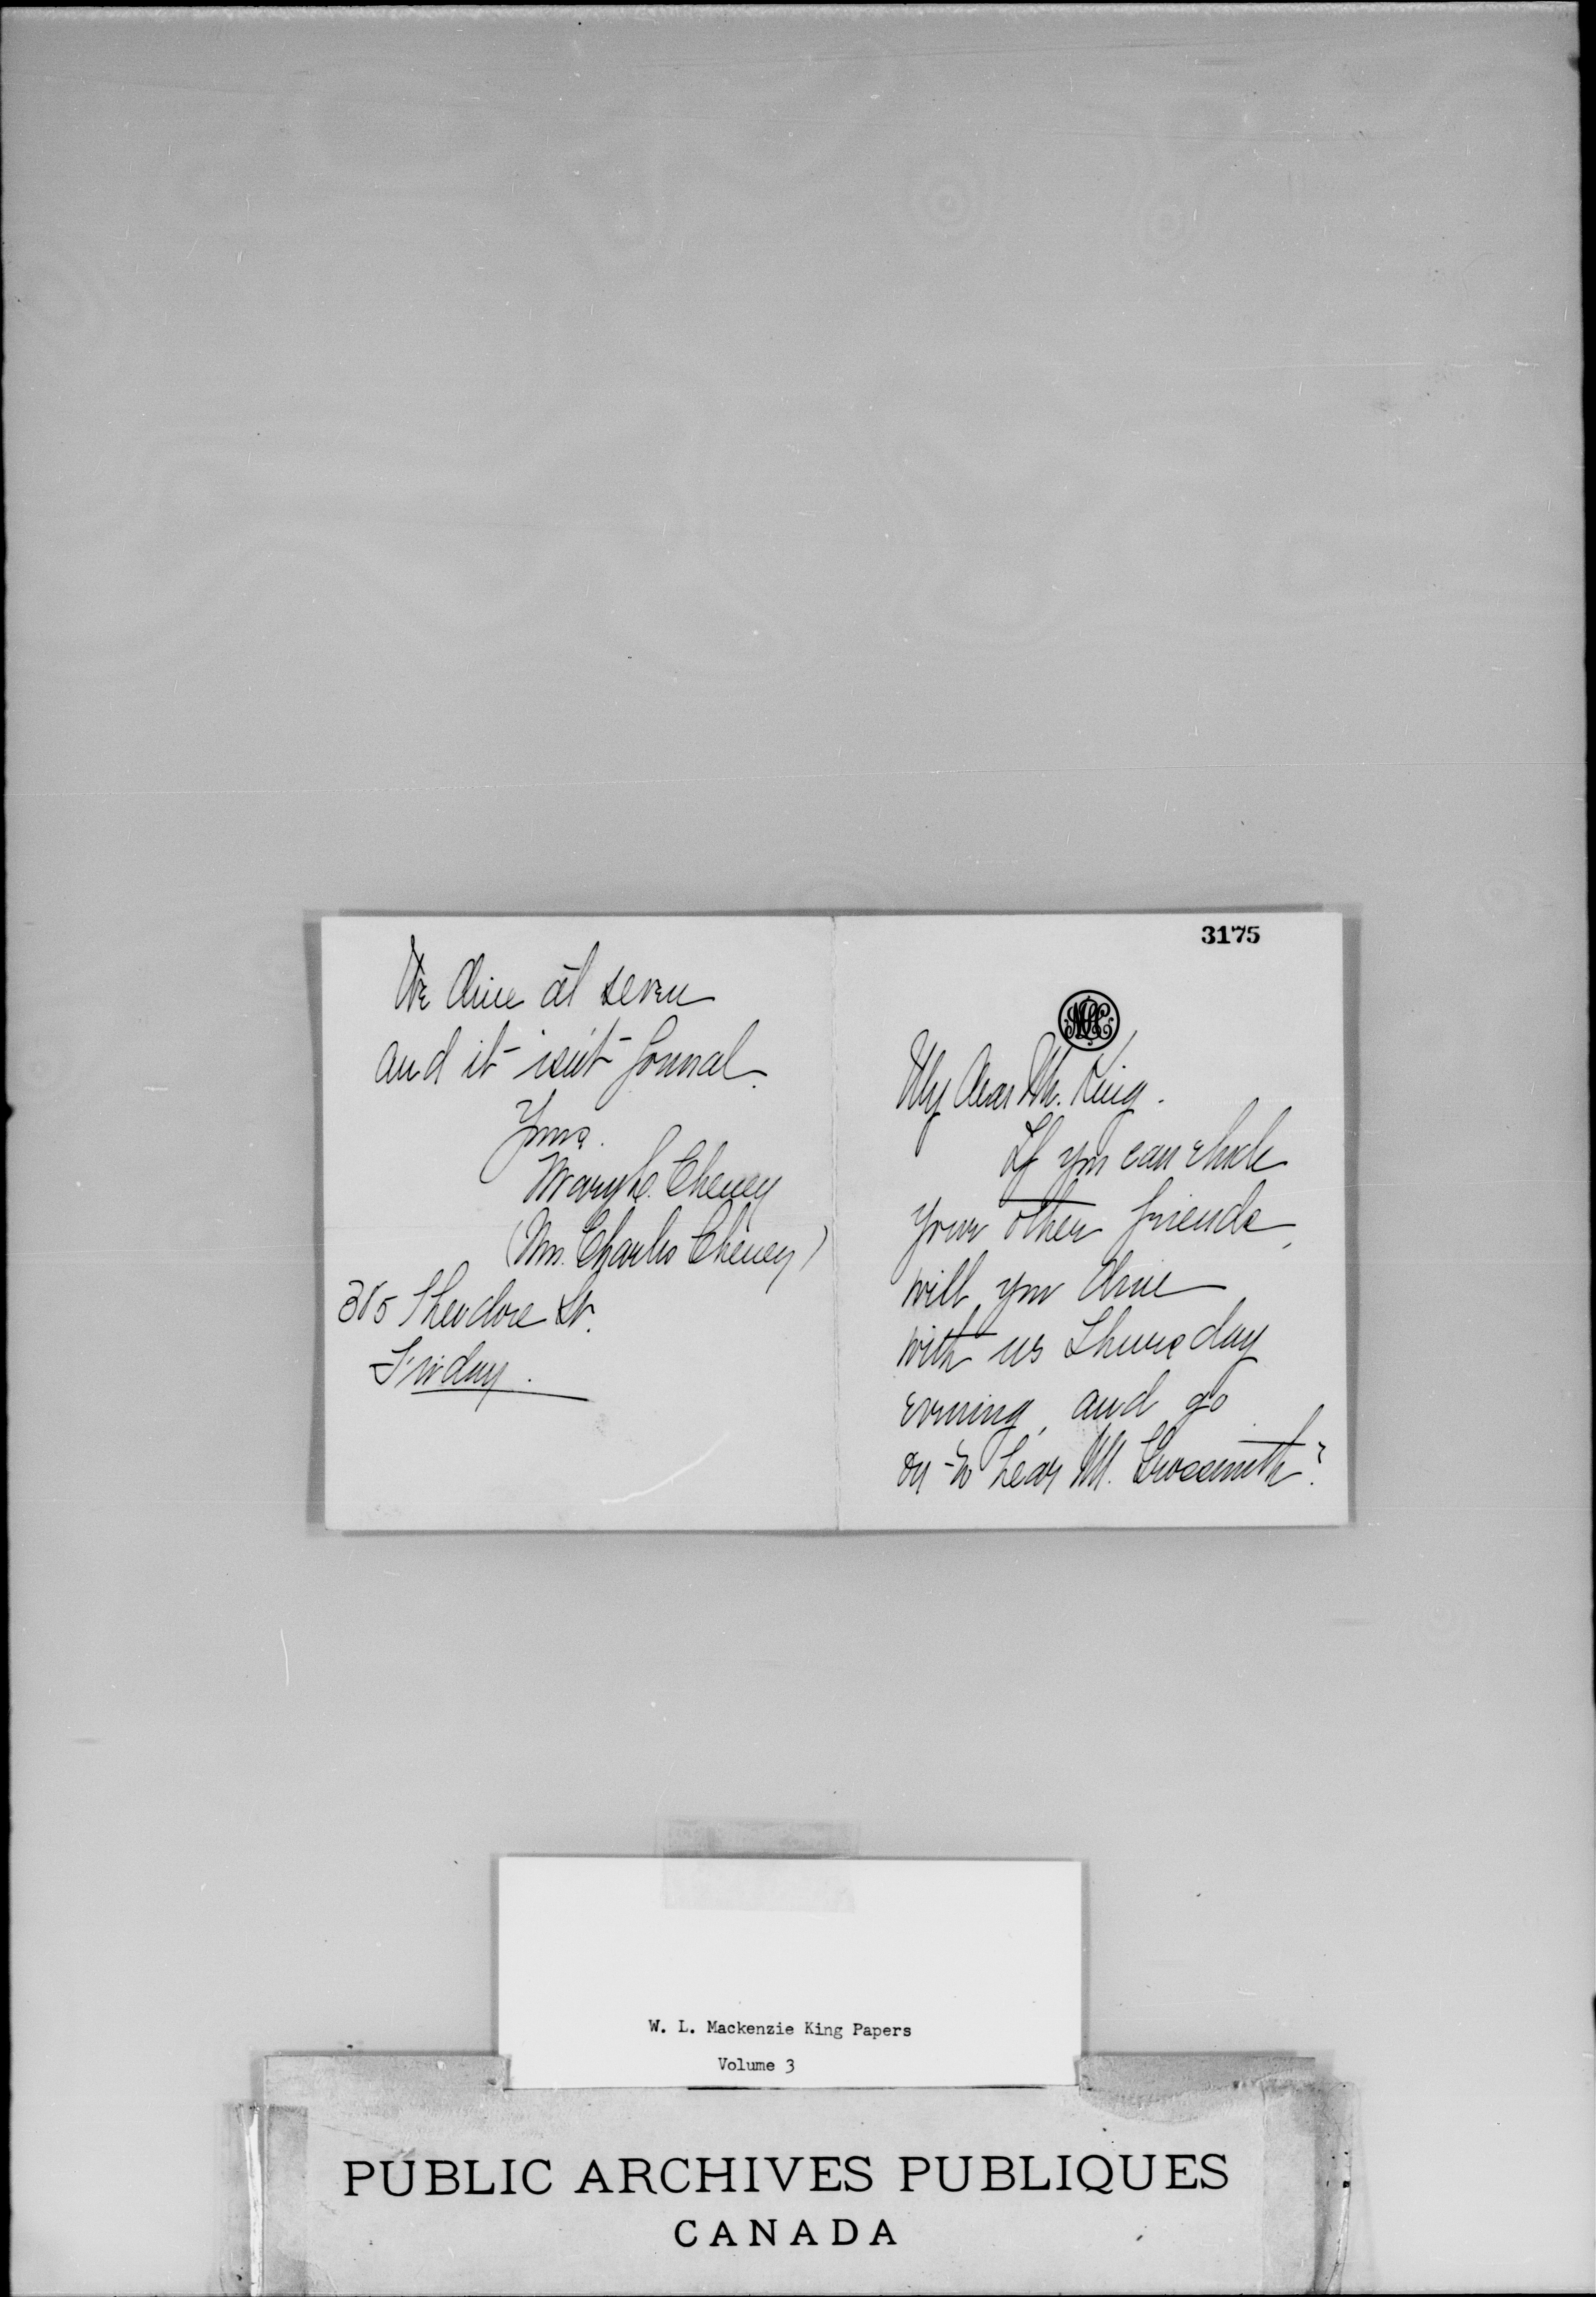 3175
My dear Mr. King.
If you can elude
your other friends,
will you dine
with us Thursday
evening, and go
on to hear Mr. Grossmith?
We dine at seven
and it isn't formal.
Yours.
Mary L. Cheney
(Mrs. Charles Cheney)
Theodore St.
Friday.
W. L. Mackenzie King Papers
Volume 3
PUBLIC ARCHIVES PUBLIQUES
CANADA